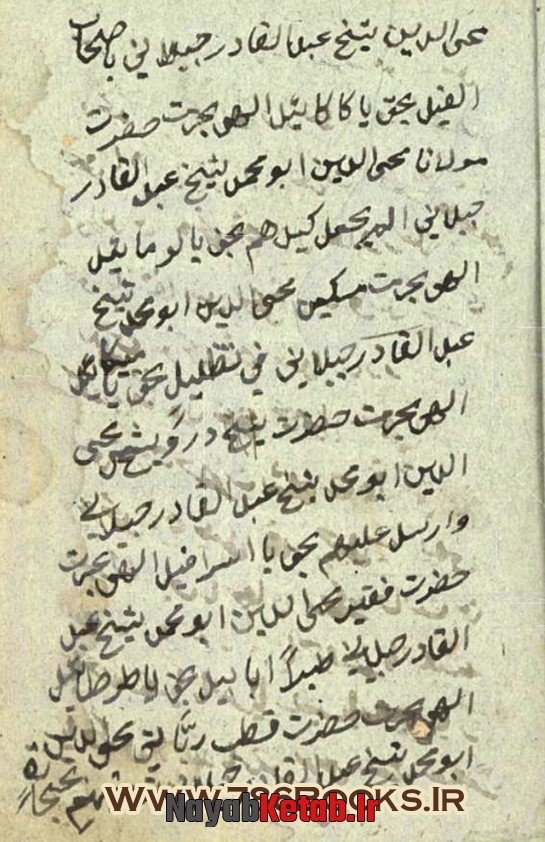 محی الدین شیخ عبدالقادر جیلانی باصحاب
الفیل بحق یا کاکائیل الهی بحرمت حضرت
مولانا محی الدین ابو محمد شیخ عبدالقادر
جیلانی الم یجعل کیدهم بحق یا لومائیل
الهی بحرمت مسکین محی الدین ابو محمد شیخ
عبدالقادر جیلانی فی تضلیل بحق یا میکائیل
الهی بحرمت حضرت شیخ درویش محی
الدین ابو محمد شیخ عبدالقادر جیلانی
وارسل علیهم بحق یا اسرافیل الهی بحرمت
حضرت فقیر محی الدین ابو محمد شیخ عبد
القادر جیلانی طیراً ابابیل بحق یا طرطائیل
الهی بحرمت حضرت قطب ربانی محی الدین
ابو محمد شیخ عبدالقادر جیلانی
WWW.786BOOKS.IR
NayabKetab.Ir